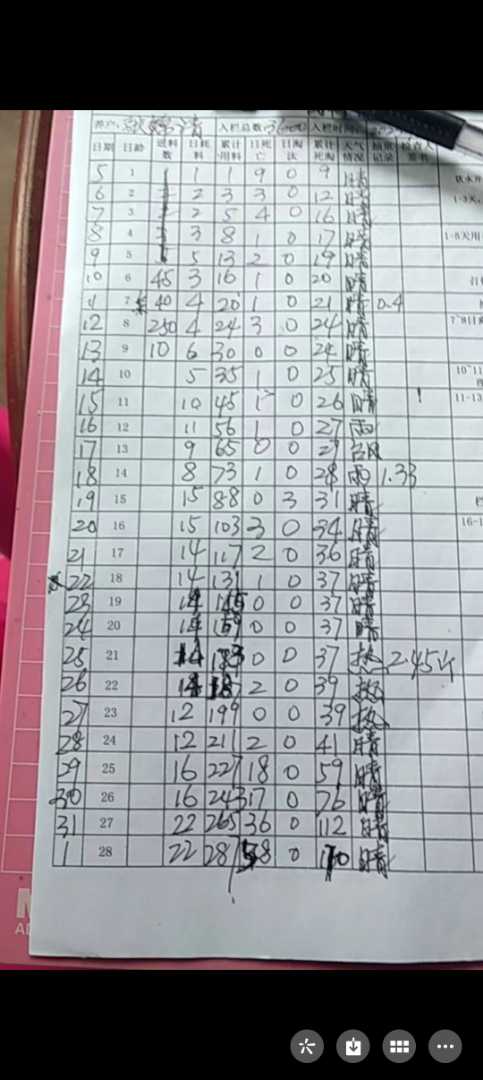 养户: 清 入栏总数 入栏时间
日期 日龄 送料数 日耗料 累计用料 日死亡 日淘汰 累计死淘 天气情况 抽重记录 检查人签名
5 1 1 1 9 0 9 晴
6 2 2 3 3 0 12 晴
7 3 2 5 4 0 16 晴
8 4 3 8 1 0 17 晴
9 5 5 13 2 0 19 晴
10 6 45 3 16 1 0 20 晴
11 7 40 4 20 1 0 21 晴 0.4
12 8 250 4 24 3 0 24 晴
13 9 10 6 30 0 0 24 晴
14 10 5 35 1 0 25 晴
15 11 10 45 1 0 26 晴
16 12 11 56 1 0 27 雨
17 13 9 65 0 0 27 台风
18 14 8 73 1 0 28 雨 1.33
19 15 15 88 0 3 31 晴
20 16 15 103 3 0 34 晴
21 17 14 117 2 0 36 晴
22 18 14 131 1 0 37 晴
23 19 14 145 0 0 37 晴
24 20 14 159 0 0 37 晴
25 21 14 0 0 37 热 2.45斤
26 22 14 2 0 39 热
27 23 12 199 0 0 39 热
28 24 12 211 2 0 41 晴
29 25 16 227 18 0 59 晴
30 26 16 243 17 0 76 晴
31 27 22 265 36 0 112 晴
1 28 22 287 58 0 170 晴
1-3天
7-8日
10-11
11-13
16-1